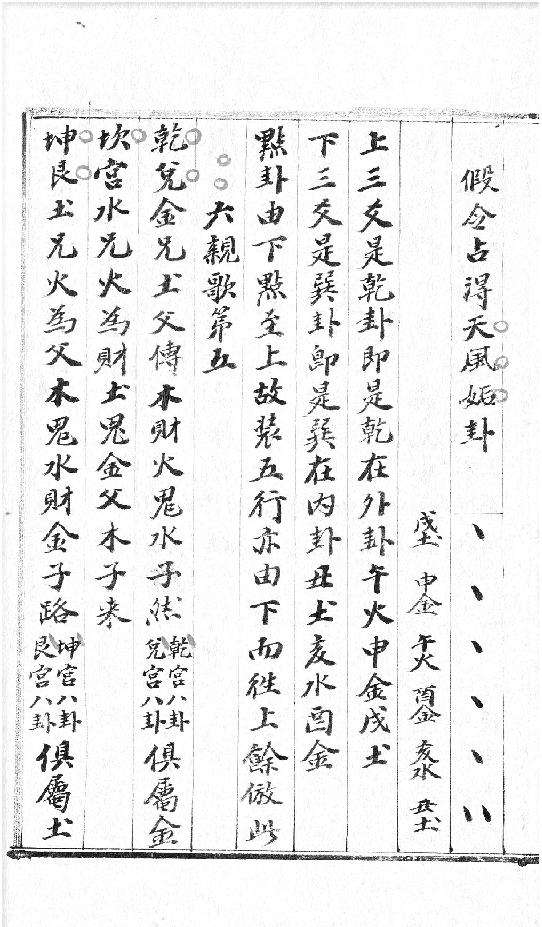 假令占得天風姤卦 丶丶丶丶丶丶丶
戌土 申金 午火 酉金 亥水 丑土
上三爻是乾卦即是乾在外卦午火申金戌土
下三爻是巽卦即是巽在内卦丑土亥水酉金
點卦由下點至上故装五行亦由下而徃上餘倣此
六親歌第五
乾兌金兄土父傳木財火鬼水子然乾宫八卦兌宫八卦俱屬金
坎宫水兄火為財土鬼金父木子来
坤艮土兄火為父木鬼水財金子路坤宫八卦艮宫八卦俱屬土